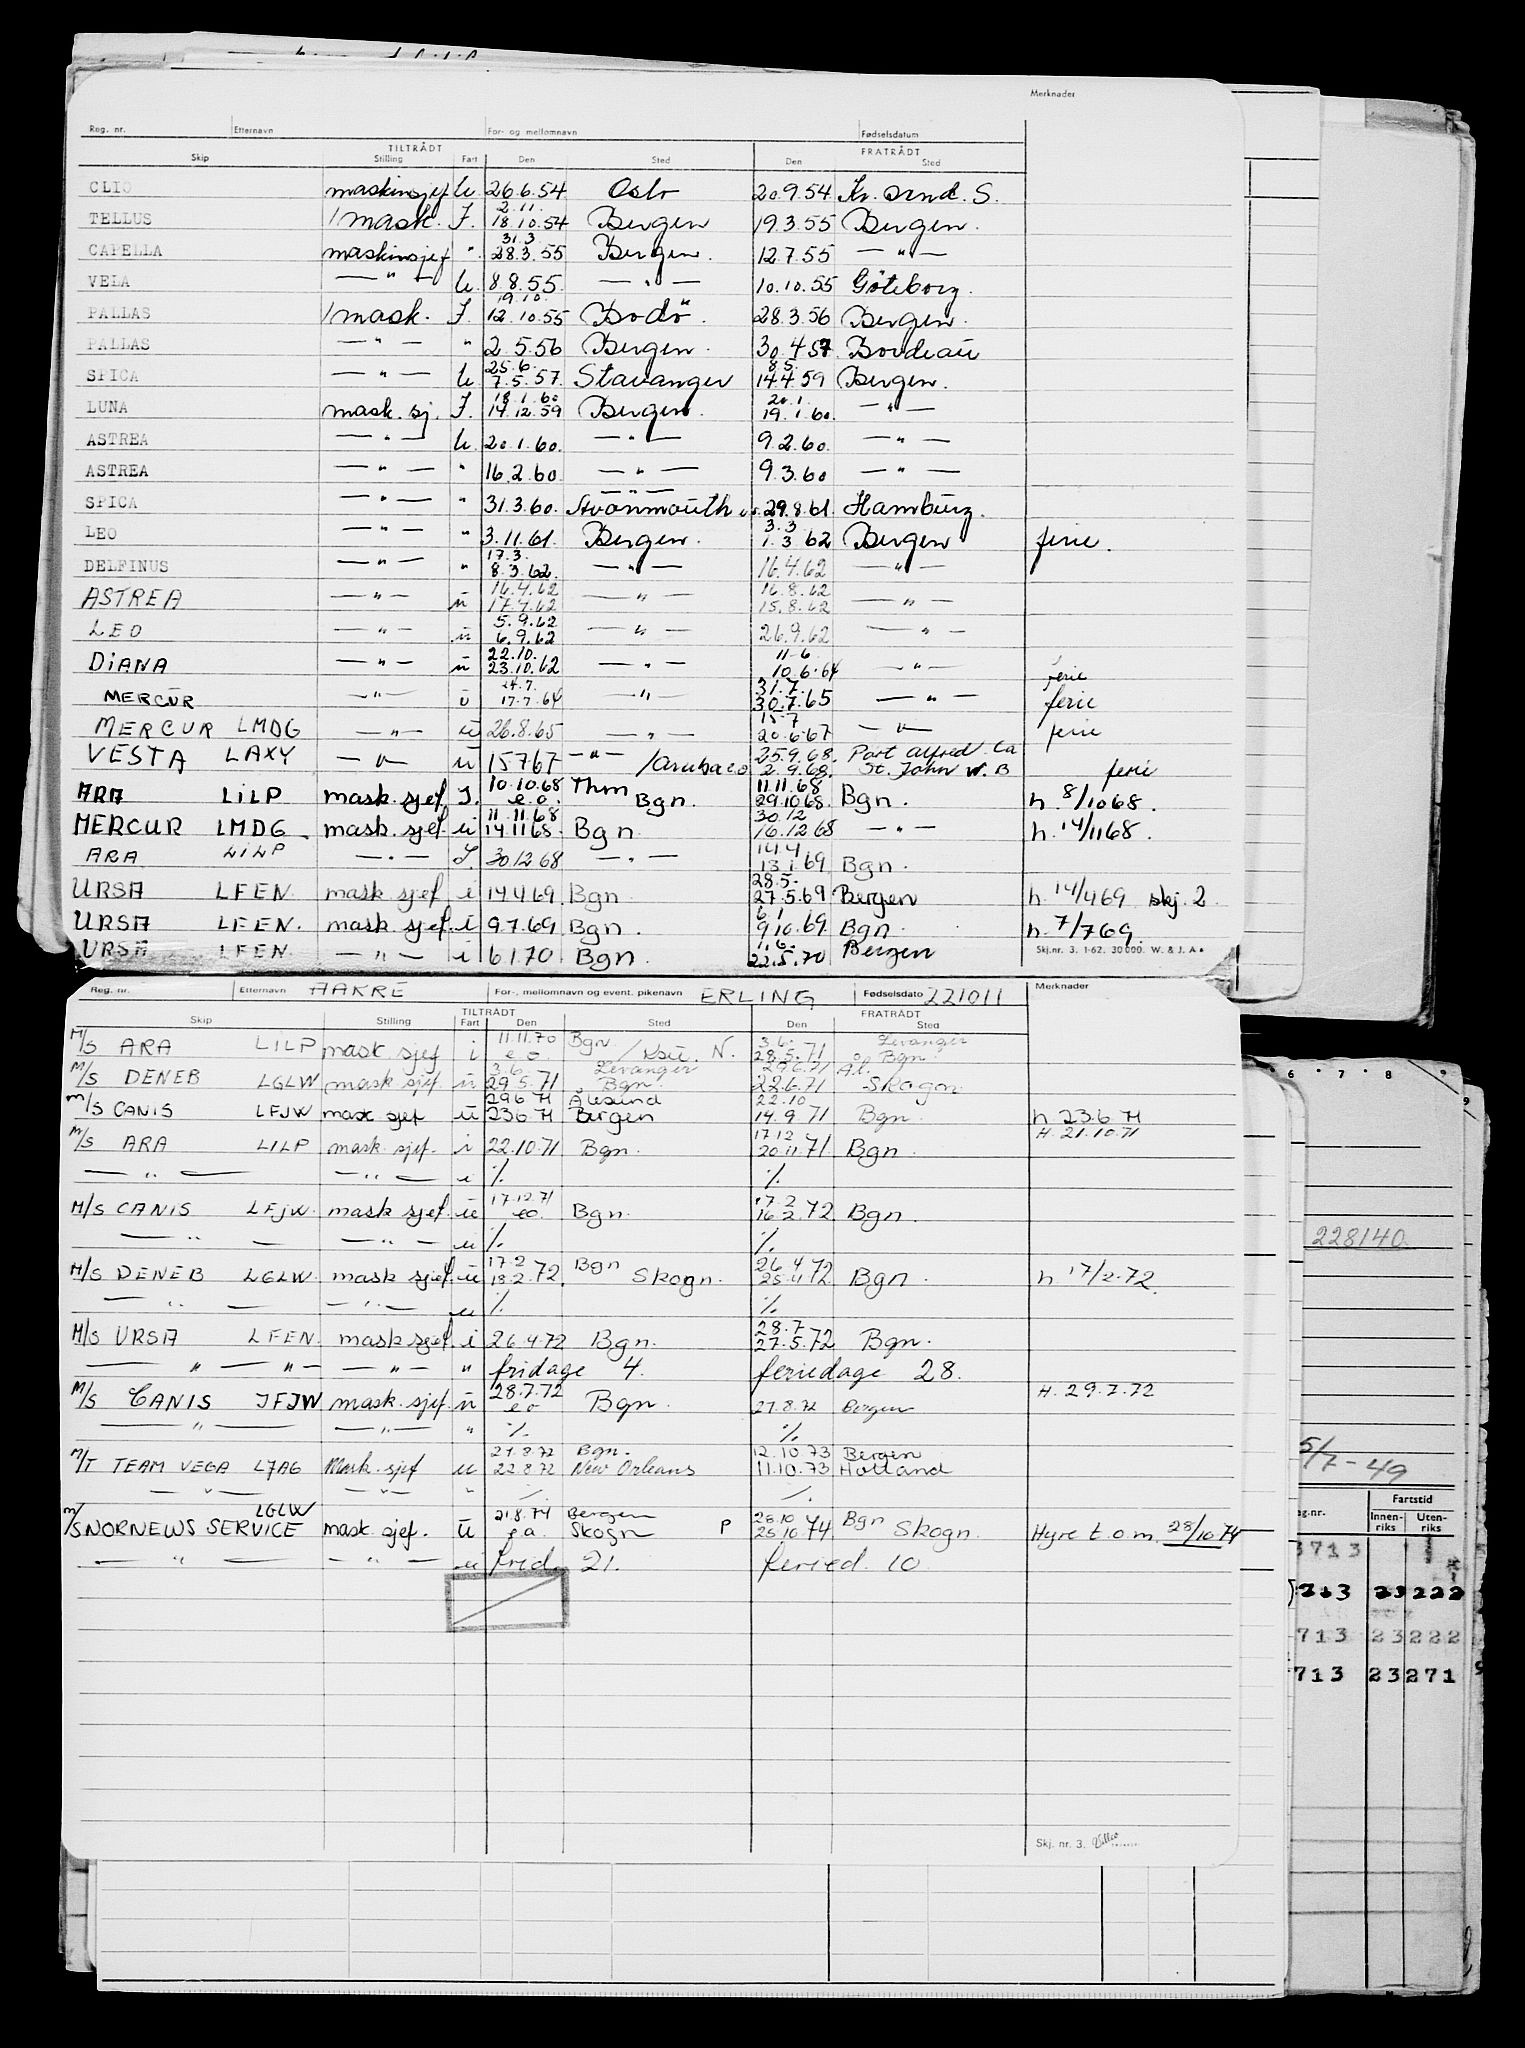 Merknader
Reg. nr. Etternavn For- og mellomnavn Fødselsdatum
TILTRÅDT FRATRÅDT
Skip Stilling Fart Den Sted Den Sted
CLIO maskinsjef U. 26.6.54 Oslo 20.9.54 Kr. sund. S.
2.11.
TELLUS 1 mask. I. 18.10.54 Bergen 19.3.55 Bergen.
31.3
CAPELLA maskinsjef " 28.3.55 Bergen. 12.7.55 — " —
VELA — " — U. 8.8.55. — " — 10.10.55 Göteborg.
19.10.
PALLAS 1 mask. I. 12.10.55 Bodö. 28.3.56 Bergen.
PALLAS — " — " 2.5.56 Bergen. 30.4.57 Bordeau
25.6. 8.5.
SPICA — " — U. 7.5.57. Stavanger 14.4.59 Bergen.
18.1.60 20.1.
LUNA mask. sj. I. 14.12.59 Bergen. 19.1.60. — " —
ASTREA — " — U. 20.1.60. — " — 9.2.60. — " —
ASTREA — " — " 16.2.60 — " — 9.3.60 — " —
SPICA — " — " 31.3.60. Avonmouth 29.8.61. Hamburg.
3.3.
LEO — " — " 3.11.61. Bergen. 1.3.62 Bergen ferie.
17.3.
DELFINUS — " — " 8.3.62. — " — 16.4.62 — " —
16.4.62 16.8.62
ASTREA — " — ü 17.4.62 — " — 15.8.62 — " —
5.9.62
LEO — " — ü 6.9.62 — " — 26.9.62 — " —
22.10. 11-6.
DIANA — " — ü 23.10.62 — " — 10.6.64 — " — ferie
24.7. 31.7.
MERCUR — " — ü 17.7.64 — " — 30.7.65 — " — ferie
15-7
MERCUR LMDG — " — ü 26.8.65 — " — 20.6.67 — " — ferie
25.9.68. Port Alfred Ca
VESTA LAXY — " — ü 15767 — " — /Aruba 2.9.68. St. John N.B ferie
10.10.68 Thm 11.11.68
ARA LILP mask. sjef I. e.o. Bgn. 29.10.68. Bgn. h. 8/1068.
11.11.68 30.12
MERCUR LMDG mask. sjef. ü 14.11.68. Bgn 16.12.68 — " — h. 14/1168.
14.4
ARA LILP — " — I. 30.12.68 — " — 13.1.69 Bgn.
28.5.
URSA LFEN. mask sjef i 14.4.69 Bgn 27.5.69 Bergen h. 14/469 skj. 2.
6.1
URSA LFEN. mask sjef. i 9.7.69 Bgn. 9.10.69 Bgn. h. 7/769.
1.6.
URSA LFEN. — " — i 6170 Bgn. 22.5.70 Bergen Skj.nr. 3. 1-62. 30 000. W. & J. A.
Reg. nr. Etternavn AAKRE For-, mellomnavn og event. pikenavn ERLING Fødselsdato 221011 Merknader
TILTRÅDT FRATRÅDT
Skip Stilling Fart Den Sted Den Sted
11.11.70 Bgn 3.6. Levanger
M/S ARA LILP mask sjef i e.o. /Ksu. N. 28.5.71 Bgn.
3.6. Levanger 29.6.71 Ål.
M/S DENEB LGLW mask sjef. ü 29.5.71 Bgn. 22.6.71 Skogn
29.6.71 Ålesund 22.10
M/S CANIS LFJW mask sjef ü 23.6.71 Bergen 14.9.71 Bgn. h 23.6.71
17.12 H. 21.10.71
M/S ARA LILP mask. sjef. i 22.10.71 Bgn. 20.11.71. Bgn.
— " — — " — i %. %.
17.12.71 17.2
M/S CANIS LFJW. mask sjef. ü eo. Bgn. 16.2.72. Bgn.
— " — — " — u %. %.
17.2 Bgn 26.4
M/S DENEB LGLW. mask sjef. ü 18.2.72. Skogn. 25.4.72 Bgn. h 17/2.72.
— " — — " — u %. %.
28.7.
M/S URSA LFEN. mask sjef. i 26.4.72 Bgn. 27.5.72 Bgn.
— " — " — — " — " fridage 4. feriedage 28.
28.7.72 H. 29.7.72
M/S CANIS JFJW mask. sjef. ü eo Bgn. 27.8.72 Bergen
— " — — " — " %. %.
27.8.72 Bgn. 12.10.73 Bergen
M/T TEAM VEGA L7AG Mask. sjef u 22.8.72 New Orleans 11.10.73 Holland
— " — — " — " %. %.
LGLW 21.8.74 Bergen 28.10 Bgn
M/S NORNEWS SERVICE mask sjef. ü e.o. Skogn P 25.10.74 Skogn. Hyre t.o.m. 28/10.74
— " — — " — u frid. 21. feried. 10.
Skj. nr. 3.
6 7 8 9
228140
5/7-49
Fartstid
Innenriks Utenriks
3713
713 23222
713 23271